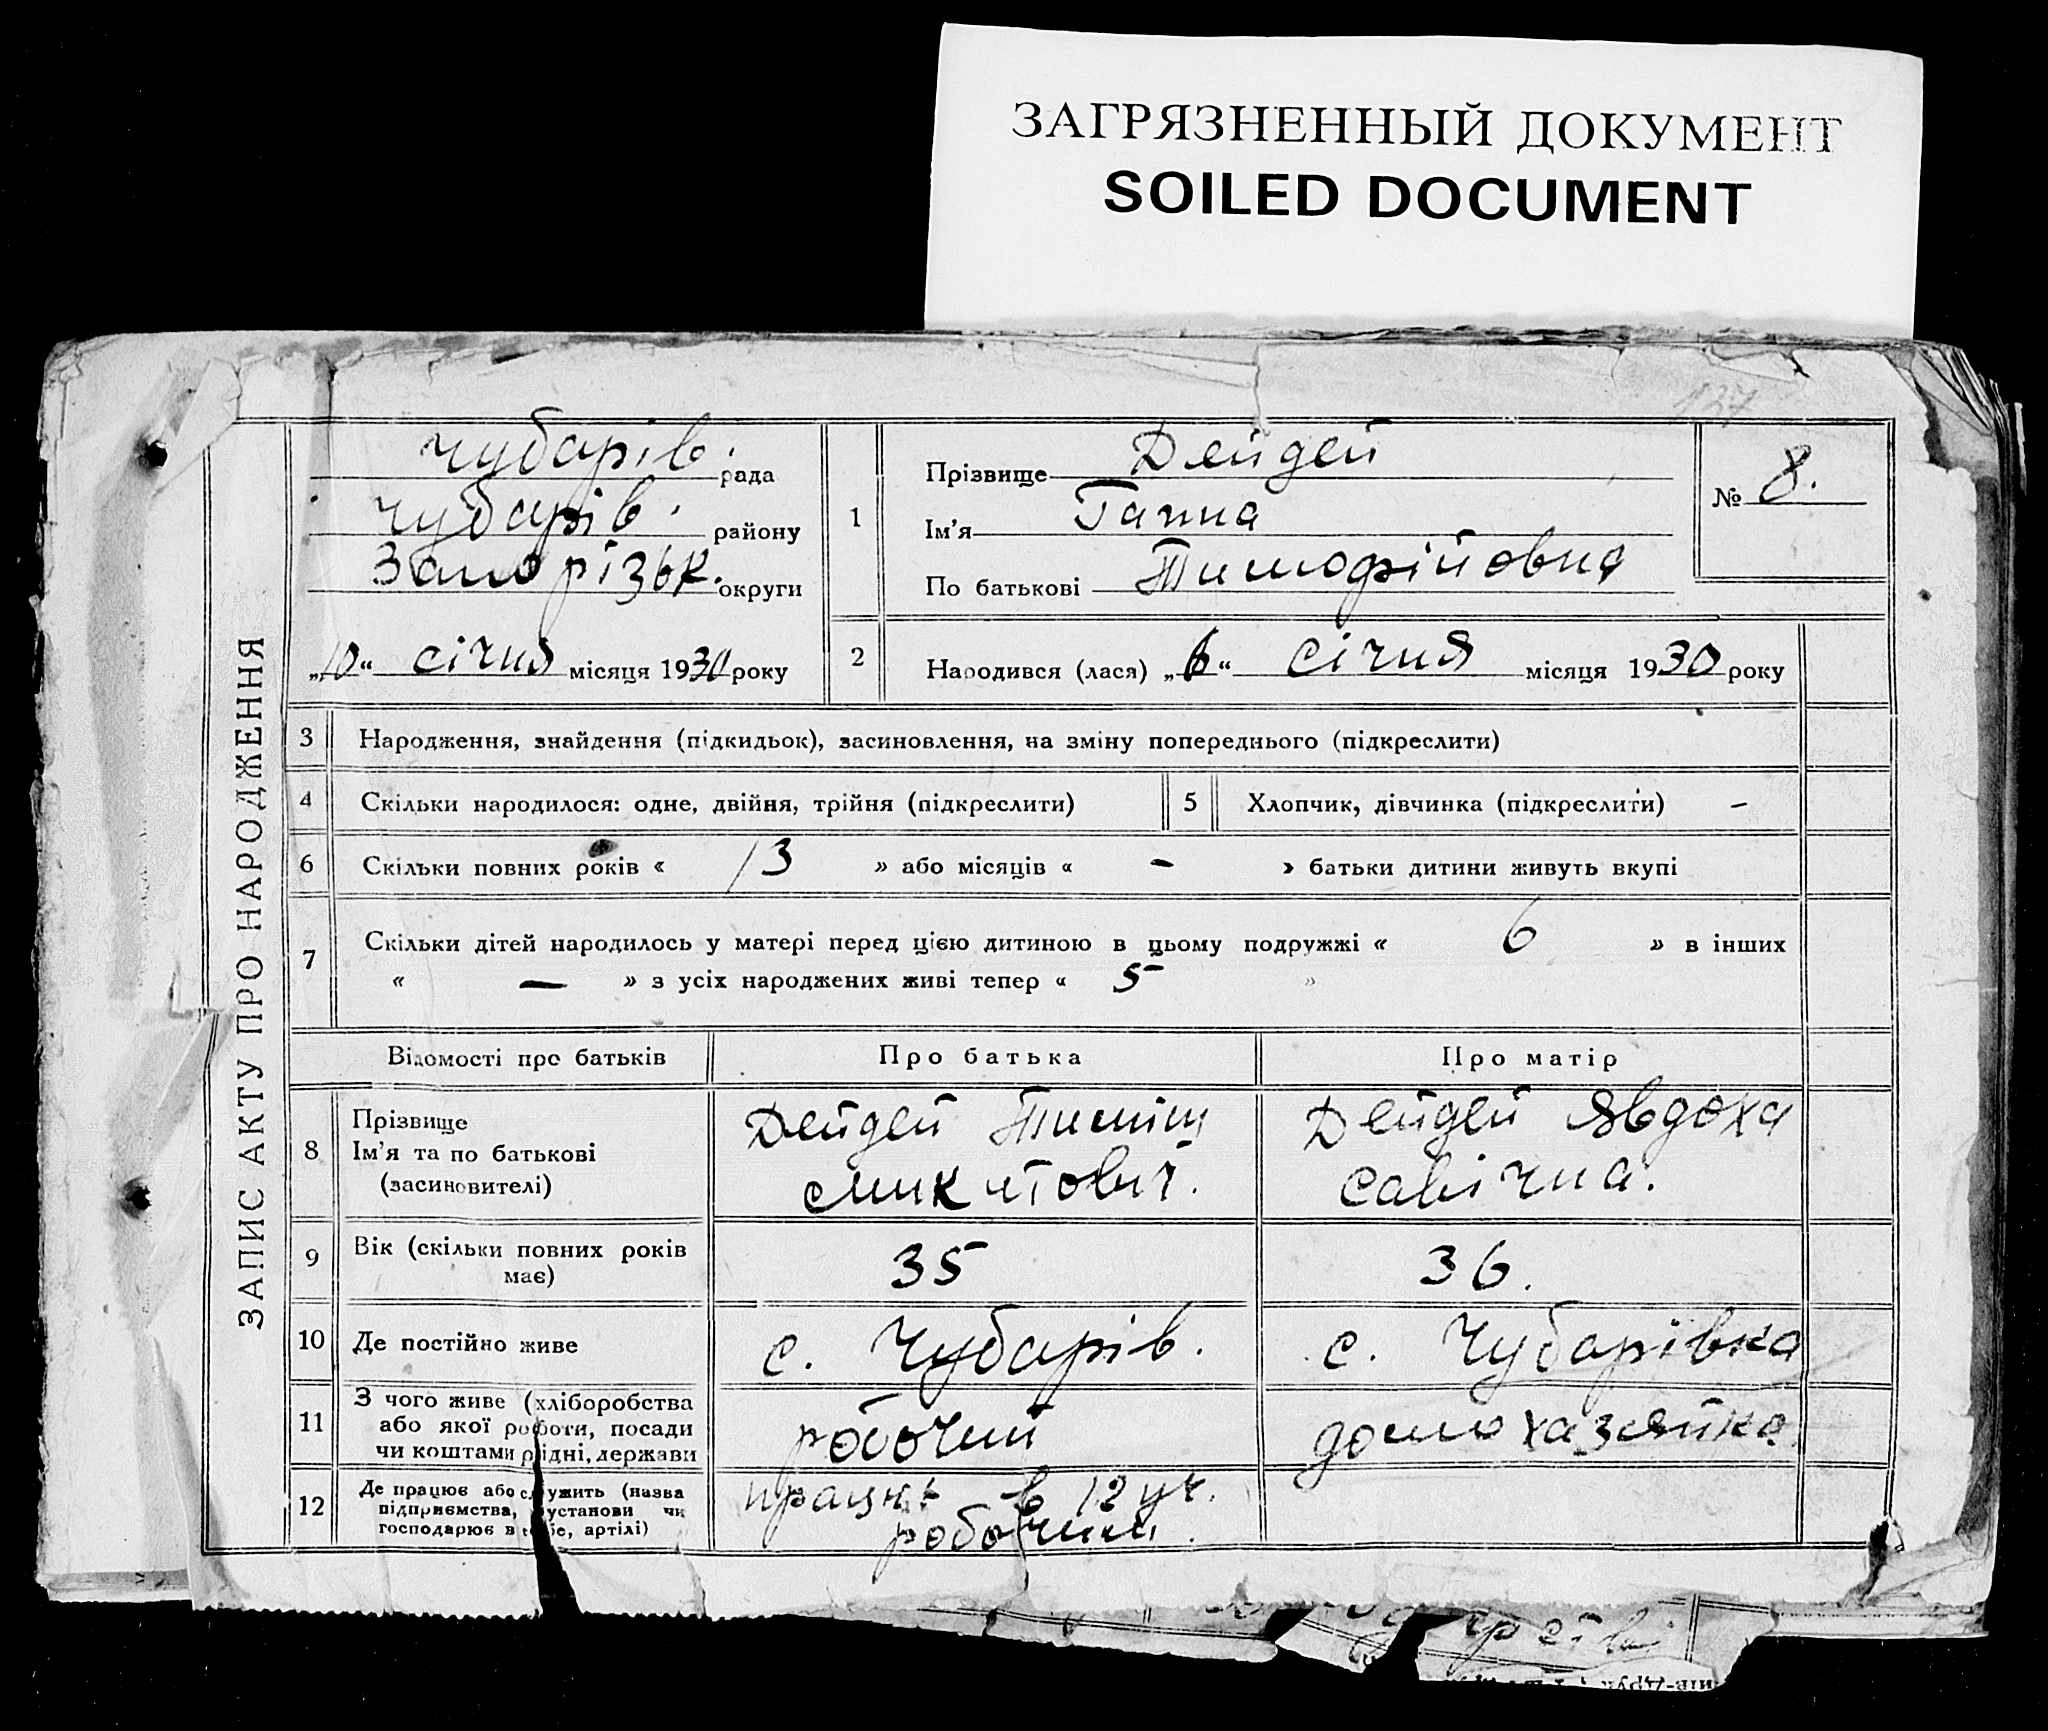 ЗАГРЯЗНЕННЫЙ ДОКУМЕНТ
SOILED DOCUMENT
127
ЗАПИС АКТУ ПРО НАРОДЖЕННЯ
Чубарів. рада
Чубарів. району
Запорізьк. округи
„10“ січня місяця 1930 року
1
Прізвище Дейдей
Ім'я Ганна
По батькові Тимофійовна
№ 8.
2 Народився (лася) „6“ січня місяця 1930 року
3 Народження, знайдення (підкидьок), засиновлення, на зміну попереднього (підкреслити)
4 Скільки народилося: одне, двійня, трійня (підкреслити)
5 Хлопчик, дівчинка (підкреслити) -
6 Скільки повних років « 13 » або місяців « - » батьки дитини живуть вкупі
7 Скільки дітей народилось у матері перед цією дитиною в цьому подружжі « 6 » в інших
« — » з усіх народжених живі тепер « 5 »
Відомості про батьків Про батька Про матір
8
Прізвище
Ім'я та по батькові
(засиновителі)
Дейдей Тиміш
Микитович.
Дейдей Явдоха
Савічна.
9
Вік (скільки повних років
має)
35
36.
10 Де постійно живе
с. Чубарів.
с. Чубарівка
11
З чого живе (хліборобства
або якої роботи, посади
чи коштами рідні, держави
робочий
домохазяйка.
12
Де працює або служить (назва
підприємства, установи чи
господарює в себе, артілі)
працює в 12 уч.
робочим.